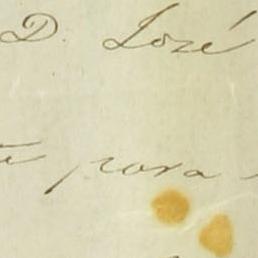 D. José
para